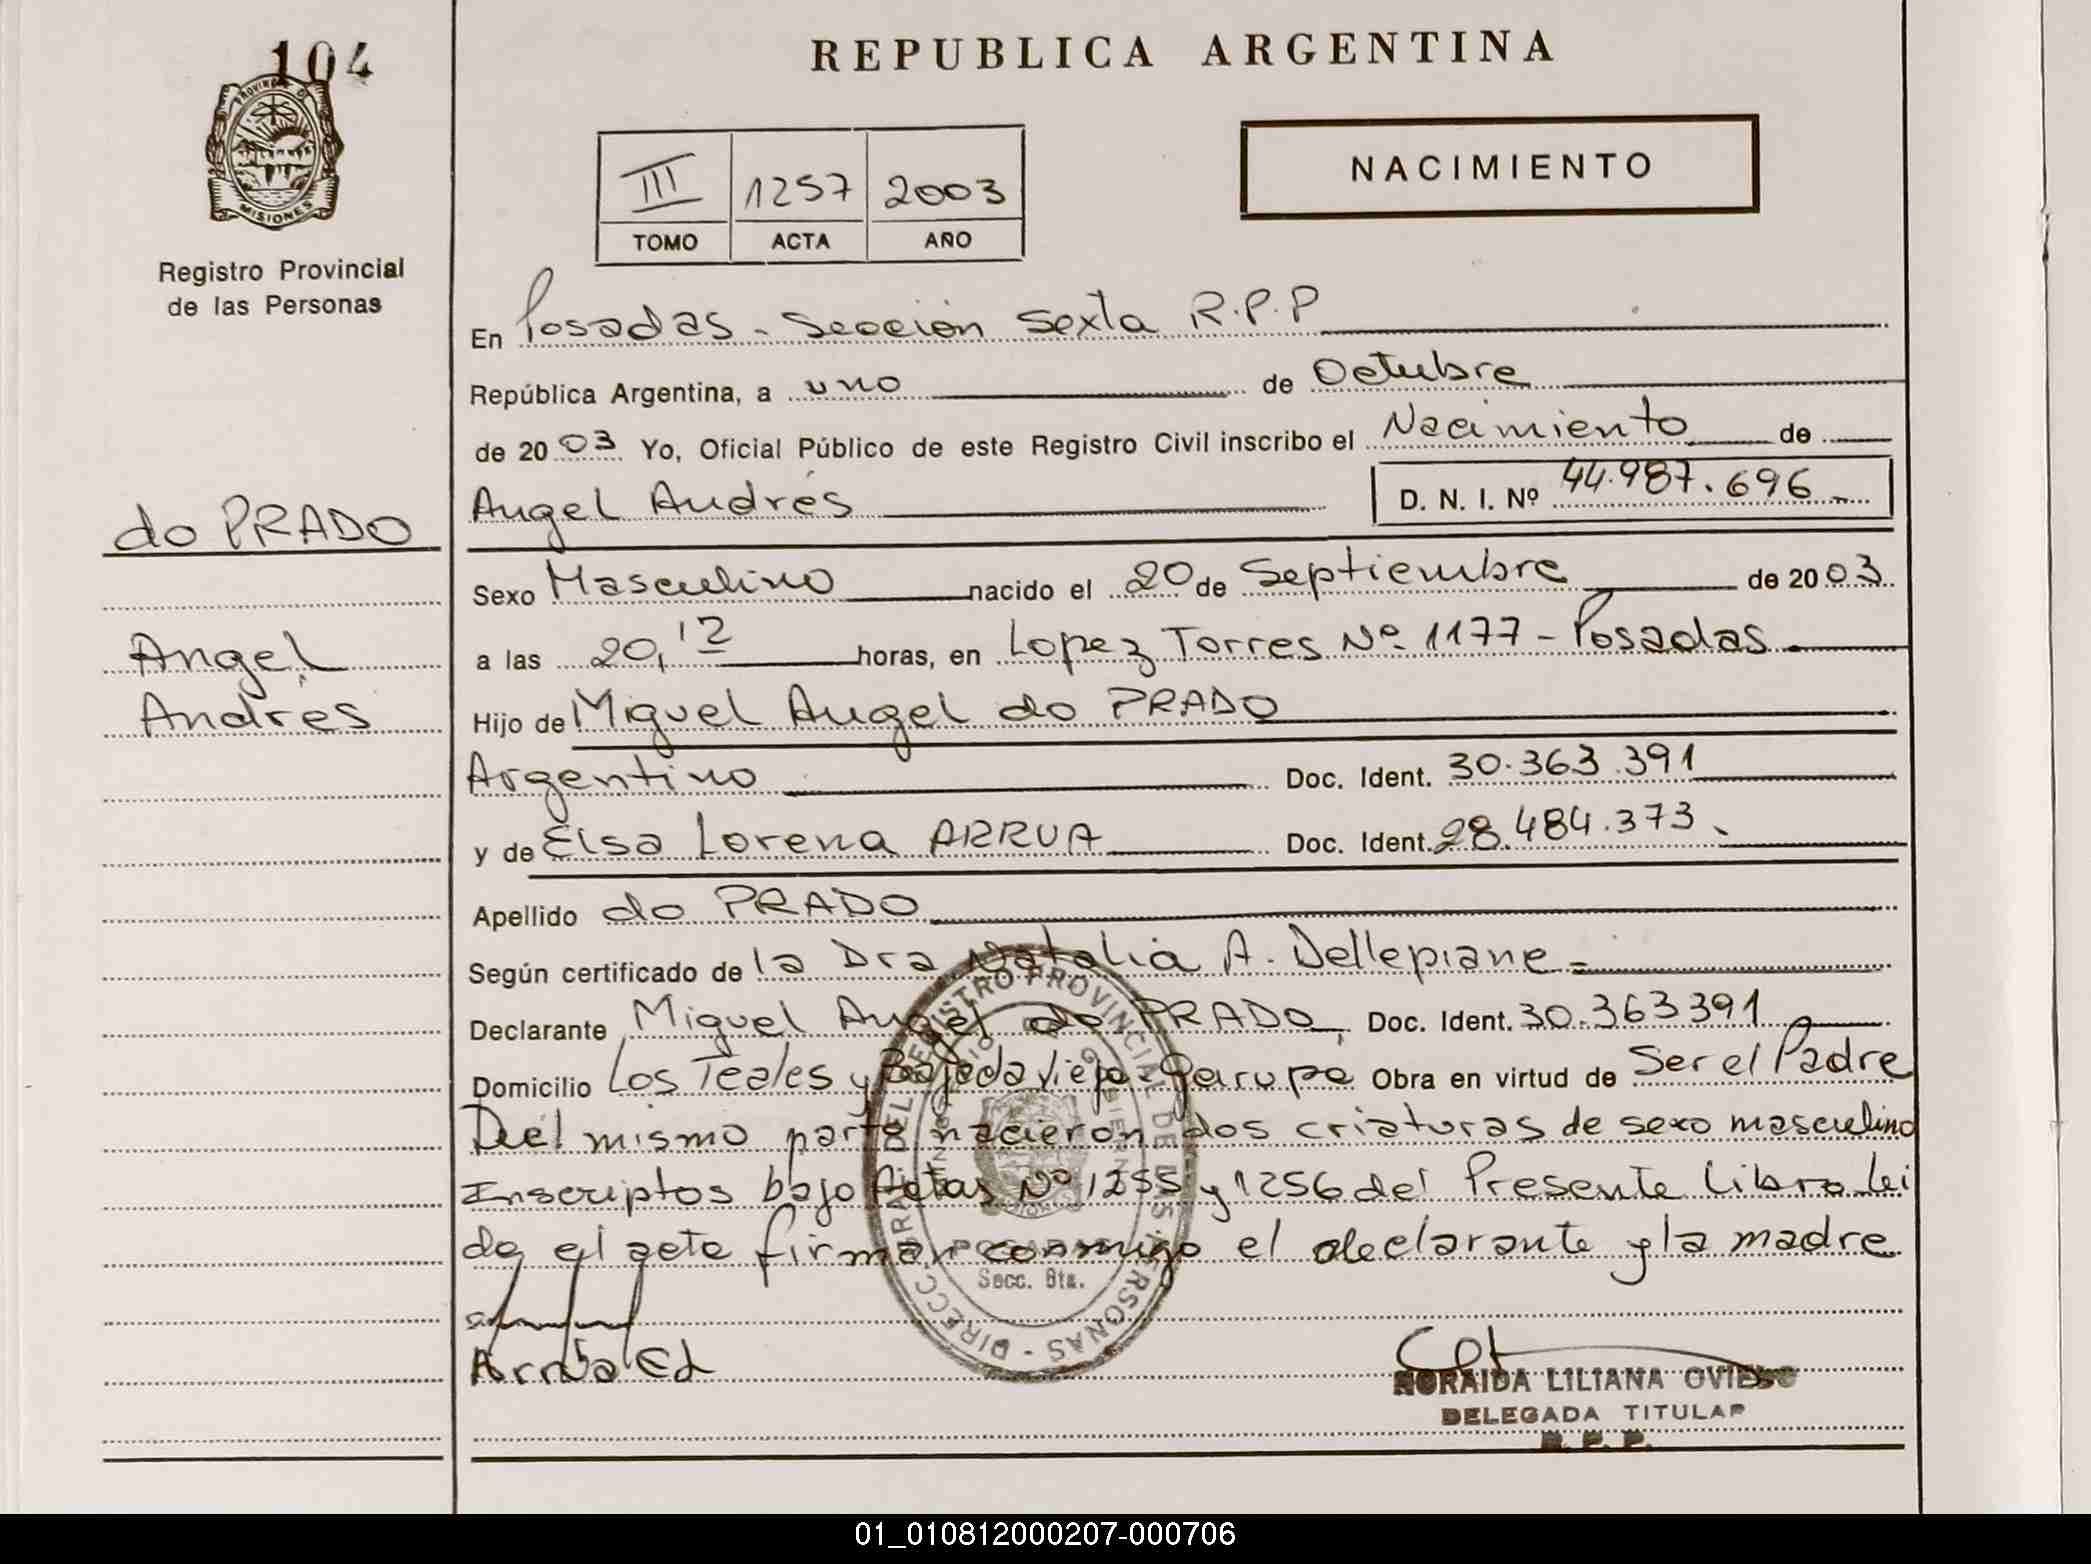 104
PROVINCIA DE
MISIONES
Registro Provincial
de las Personas
do PRADO
Angel
Andrés
REPUBLICA ARGENTINA
NACIMIENTO
III 1257 2003
TOMO ACTA AÑO
En Posadas - Sección Sexta R.P.P
República Argentina, a uno de Octubre
de 2003 Yo, Oficial Público de este Registro Civil inscribo el Nacimiento de
Angel Andrés D. N. I. Nº 44.987.696
Sexo Masculino nacido el 20 de Septiembre de 2003
a las 20,12 horas, en Lopez Torres Nº 1177 - Posadas
Hijo de Miguel Angel do PRADO
Argentino Doc. Ident. 30.363.391
y de Elsa Lorena ARRUA Doc. Ident. 28.484.373
Apellido do PRADO
Según certificado de la Dra Natalia A. Dellepiane
Declarante Miguel Angel do PRADO, Doc. Ident. 30.363391
Domicilio Los Teales y Bajada Vieja - Garupa Obra en virtud de Ser el Padre
Del mismo parto nacieron dos criaturas de sexo masculino
Inscriptos bajo Actas Nº 1255 y 1256 del Presente Libro Lei
da el acta firman conmigo el declarante y la madre
DIRECC. GRAL. DEL REGISTRO PROVINCIAL DE LAS PERSONAS
POSADAS
Secc. 6ta.
Arrua
NORAIDA LILIANA OVIEDO
DELEGADA TITULAR
R. P. P.
01_010812000207-000706